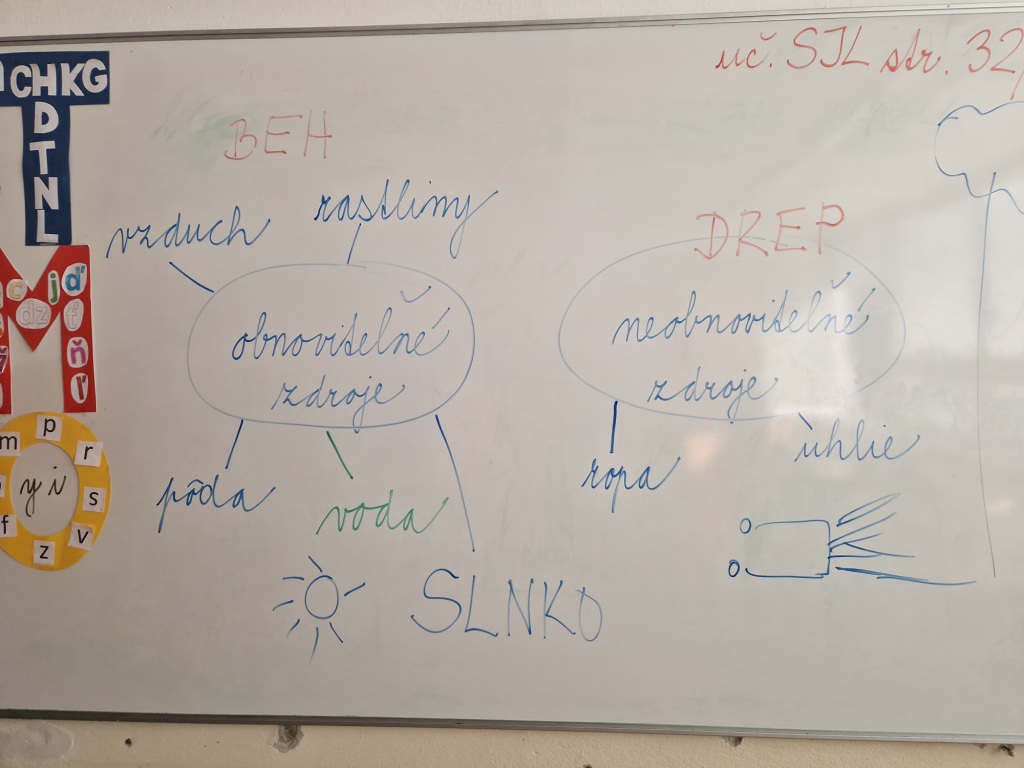 uč. SJL str. 32/
CHKG
D
T
N
L
BEH
vzduch
rastliny
obnoviteľné
zdroje
pôda
voda
SLNKO
DREP
neobnoviteľné
zdroje
ropa
uhlie
c dz j ď
ť
ň
ľ
m p r
s
f y i v
z